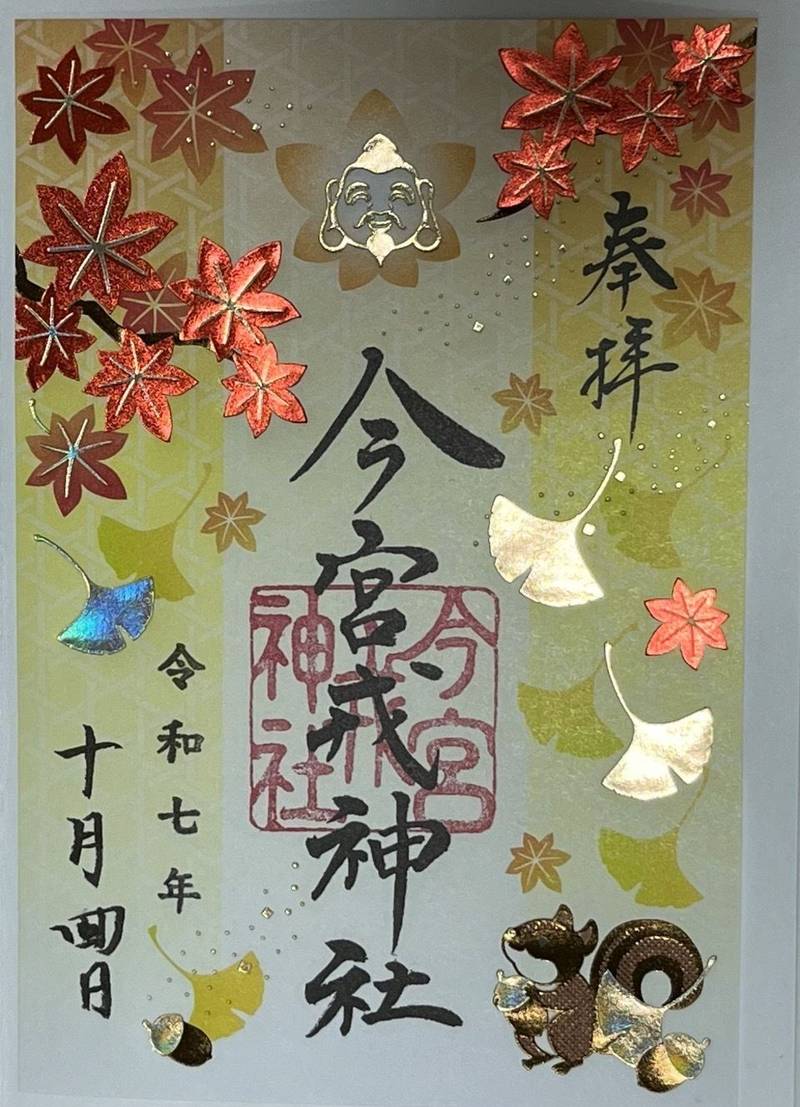 奉拝
今宮戎神社
今宮戎神社
令和七年
十月四日